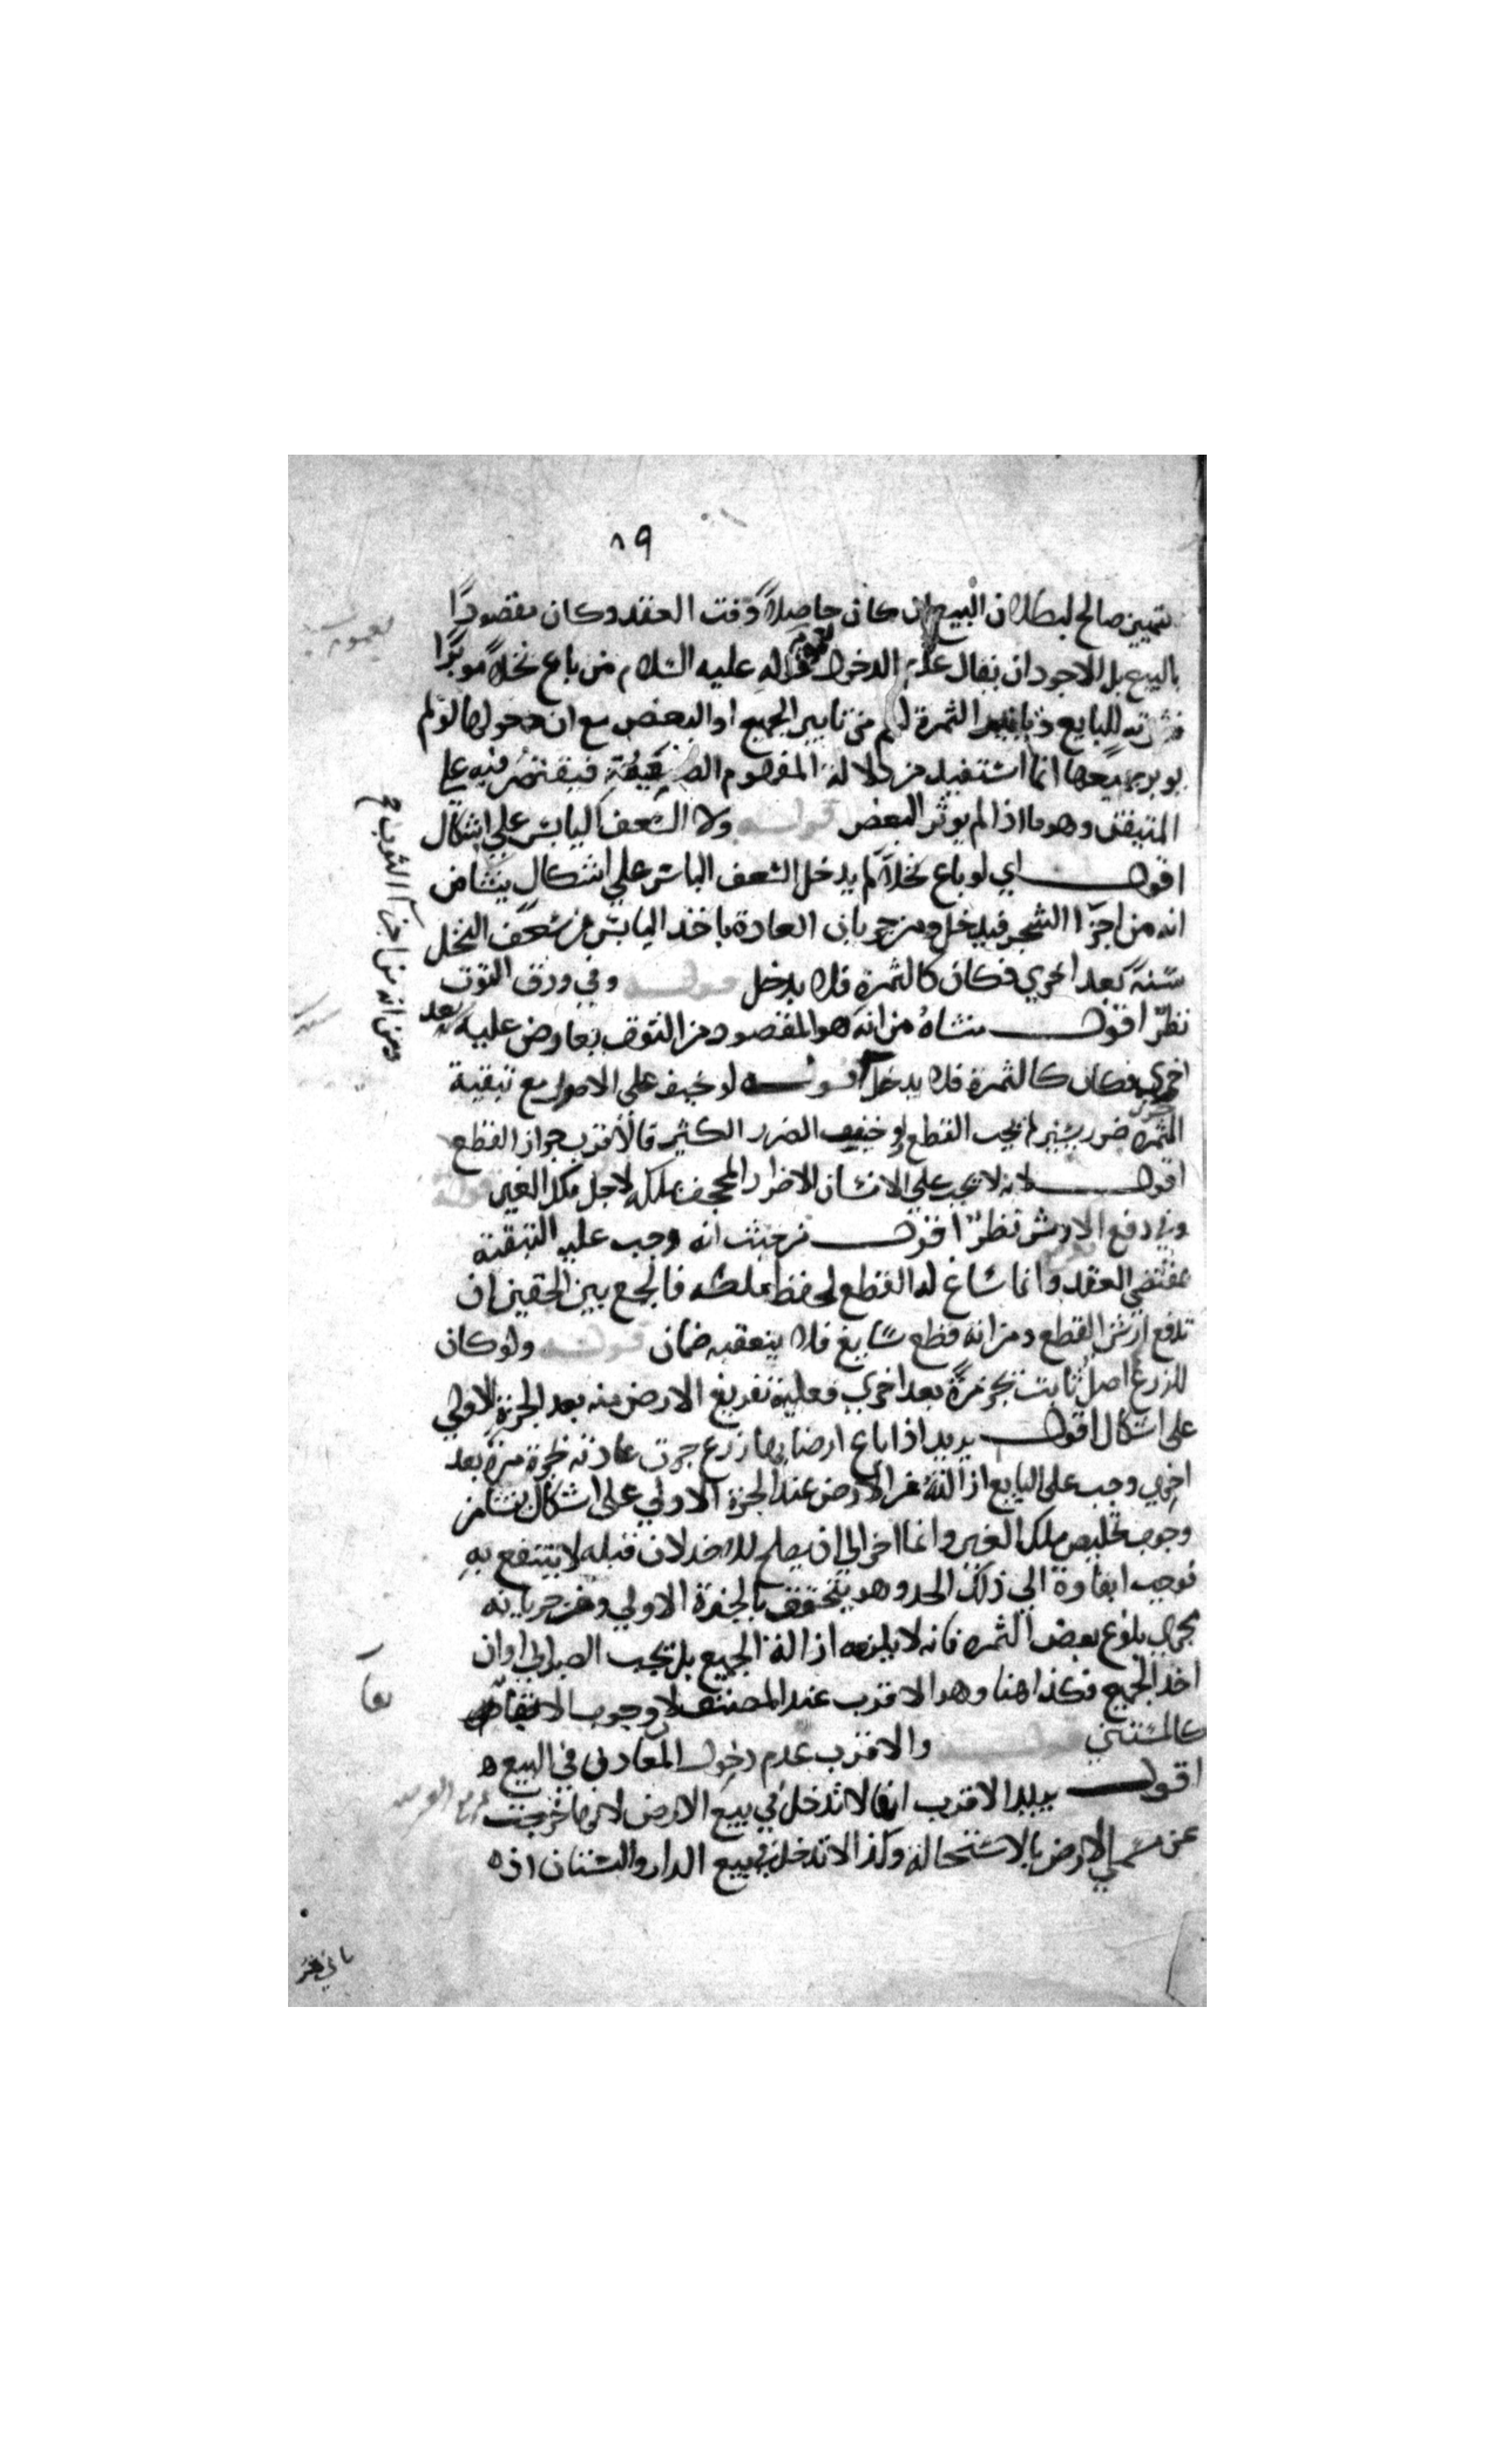 ٨٩
بتعيين صالح لبطلان البيع ان كان حاصلاً وقت العقد وكان مقصودًا
بالبيع بل الاجود ان يقال عدم الدخول لعموم قوله عليه السلام من باع نخلاً موبرًا
للبايع الثمرة من تابير الجميع او البعض مع ان دخولها لو لم
يوبر جميعها انما استفيد من دلالة المفهوم الضعيفة فيقتصر فيه على
المتيقن وهو ما اذا لم يوبر البعض قوله ولا السعف اليابس على اشكال
اقول اي لو باع نخلاً لم يدخل السعف اليابس على اشكال ينشا من
انه من اجزا الشجر فيدخل ومن جريان العادة باخذ اليابس من سعف النخل
سنة بعد اخرى فكان كالثمرة فلا يدخل قوله وفي ورق التوت
نظر اقول منشاه من انه هو المقصود من التوت بعاوض عليه بعد
اخرى فكان كالثمرة فلا يدخل قوله لو خيف على الاصول مع تبقية
الثمرة ضرر يسير لم يجب القطع ولو خيف الضرر الكثير فالاقرب جواز القطع
اقول لانه لا يجب على الانسان الاضرار المجحف بملكه لاجل ملك الغير قوله
وفي دفع الارش نظر اقول من حيث انه وجب عليه التبقية
بمقتضى العقد وانما ساغ له القطع لحفظ ملكه فالجمع بين الحقين ان
تدفع ارش القطع ومن انه قطع سايغ فلا يتعقبه ضمان قوله ولو كان
للزرع اصل ثابت يجز مرة بعد اخرى فعليه تفريغ الارض منه بعد الجزة الاولى
على اشكال اقول يريد اذا باع ارضا بها زرع جرت عادته بجزه مرة بعد
اخرى وجب على البايع ازالته عن الارض عند الجزة الاولى على اشكال ينشا من
وجوب تخليص ملك الغير وانما اخر الى ان يصلح للاخذ لان قبله لا ينتفع به
فوجب ابقاوه الى ذلك الحد وهو يتحقق بالجزة الاولى ومن جريانه
مجرى بلوغ بعض الثمره فانه لا يلزمه ازالة الجميع بل يجب الصبر الى اوان
اخذ الجميع فكذا هنا وهو الاقرب عند المصنف لوجوب الابقا
قوله والاقرب عدم دخول المعادن في البيع
اقول يريد الاقرب انها لا تدخل في بيع الارض لانها خرجت
عن مسمى الارض بالاستحالة وكذا لا تدخل في بيع الدار والبستان اذ
ومن انه من اجزا الشجر